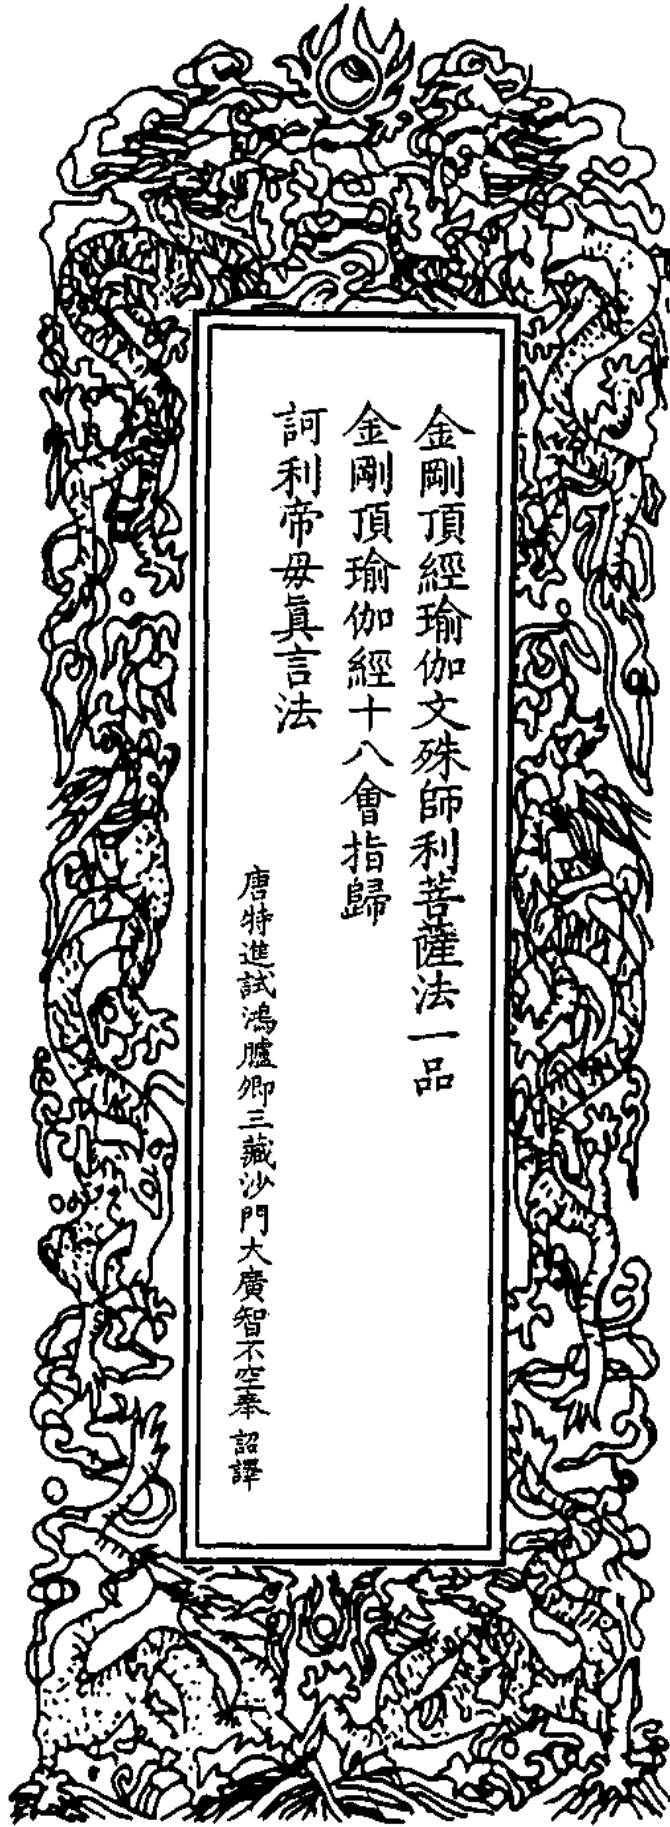 金剛頂經瑜伽文殊師利菩薩法一品
金剛頂瑜伽經十八會指歸
訶利帝毋眞言法
唐特進試鴻臚卿三藏沙門大廣智不空奉 詔譯